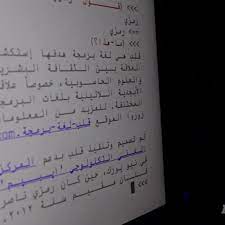 >>> (قول رمزي)
رمزي
>>> رمزي
>>> (ما-هذا؟)
قلب هي لغة برمجة هدفها إستكش
العلاقة بين الثقافة البشري
والعلوم الحاسوبية، خصوصاً علاق
الأبجدية اللاتينية بلغات البرمج
المختلفة. للمزيد من المعلومات
زوروا الموقع قلب-لغة-برمجة.com
تم تصميم وتنفيذ قلب بدعم المركز
الفني التكنولوجي "إيبيم"
في نيو يورك، حين كان رمزي ناصر
فنان مقيم سنة ٢٠١٢.
>>>